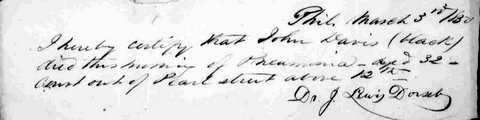 Phil. March 3rd 1850
I hereby certify that John Davis (black)
died this morning of Pneumonia – aged 32 –
Court out of Pearl street above 12th
Dr. J. Lewis Dorsey